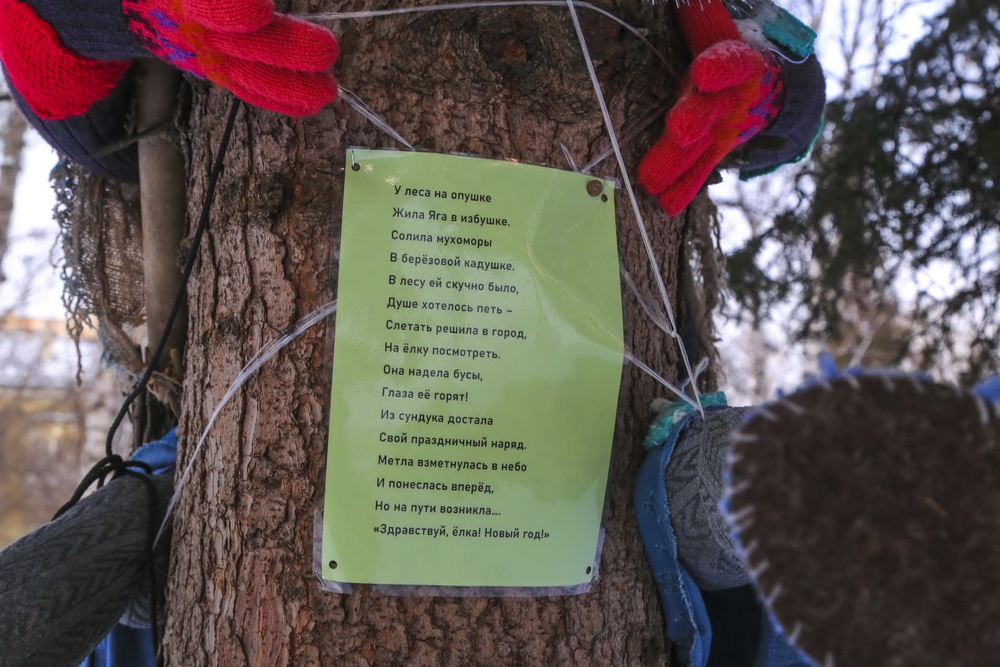 У леса на опушке
Жила Яга в избушке.
Солила мухоморы
В берёзовой кадушке.
В лесу ей скучно было,
Душе хотелось петь –
Слетать решила в город,
На ёлку посмотреть.
Она надела бусы,
Глаза её горят!
Из сундука достала
Свой праздничный наряд.
Метла взметнулась в небо
И понеслась вперёд,
Но на пути возникла….
«Здравствуй, ёлка! Новый год!»